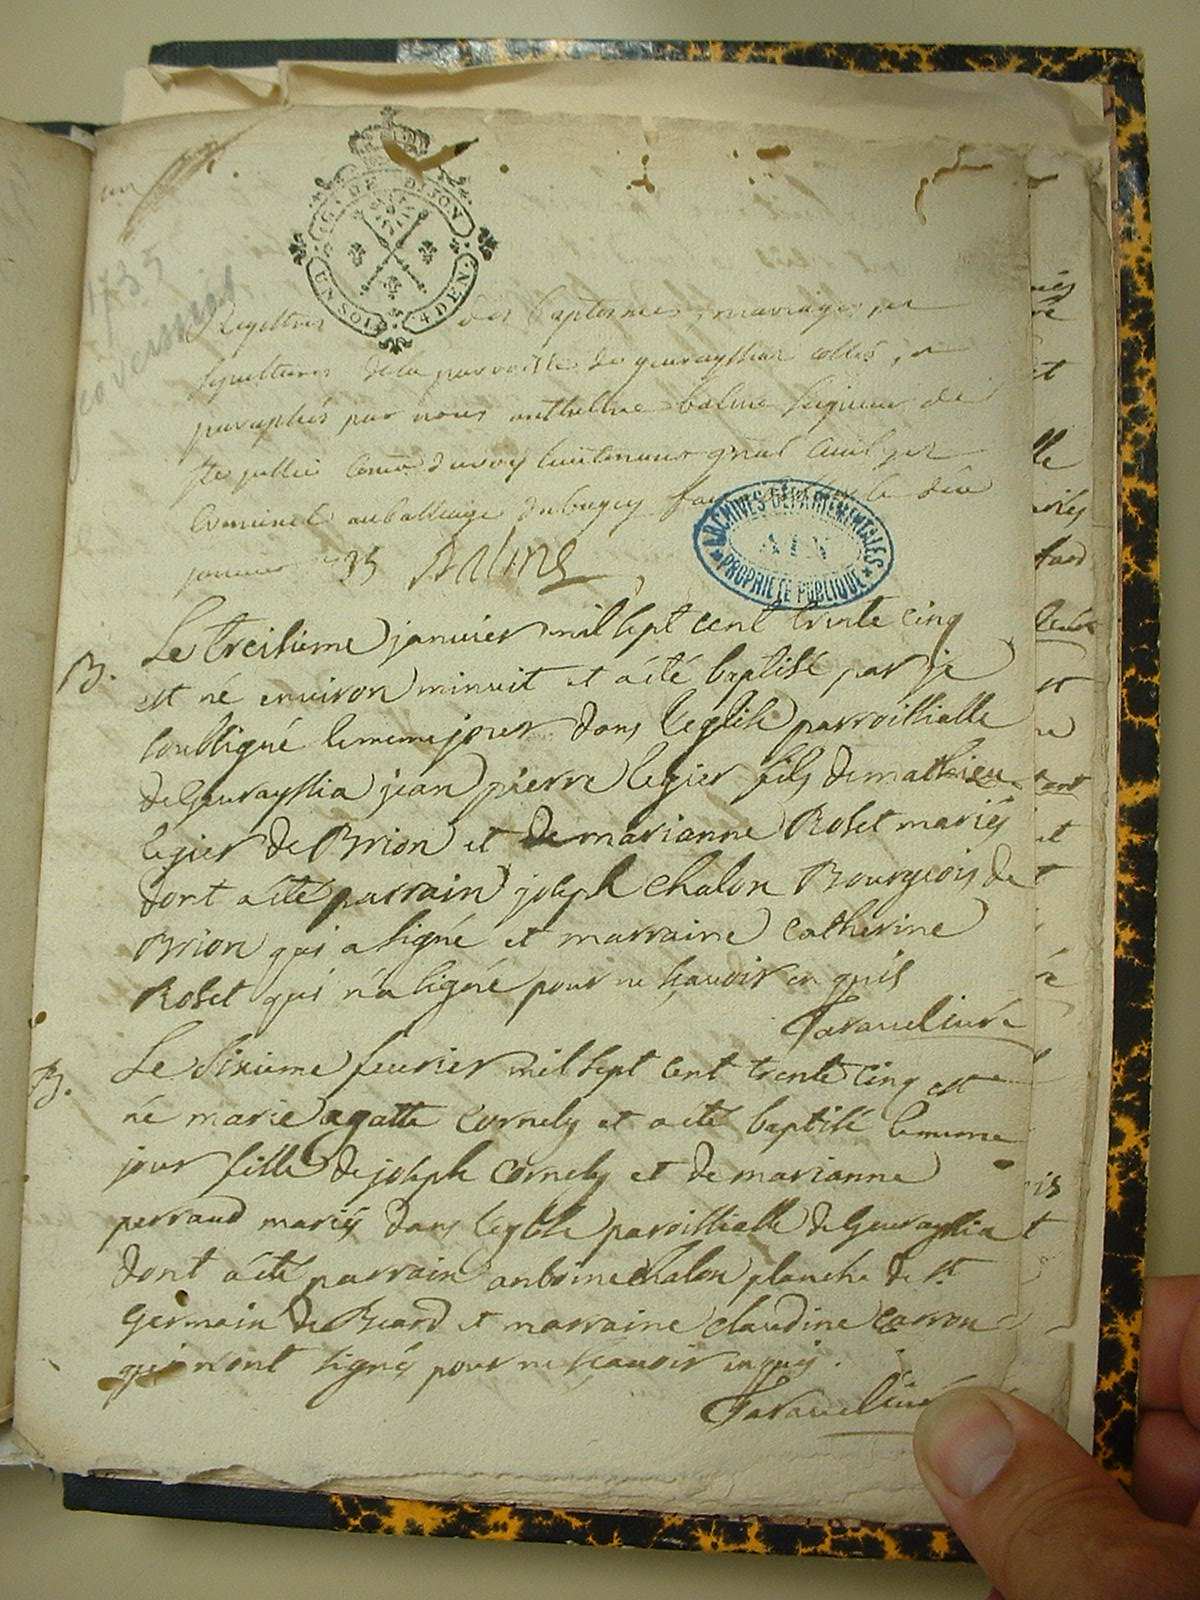 G. DE DIJON
UN SOL 4 DEN.
1735
geovreissiat
Registres des baptesmes, mariages, et
sepultures de la parroisse de geurayssiat cottés, et
paraphés par nous anthelme balme seigneur de
Ste jullie lieutenant gnal civil et
criminel au balliage du bugey le
janvier 35 Balme
ARCHIVES DÉPARTEMENTALES
AIN
PROPRIÉTÉ PUBLIQUE
B. Le treisieme janvier mil sept cent trente cinq
est ne environ minuit et a été baptisé par je
soussigné le meme jour dans l'eglise parroissialle
de Geurayssia jean pierre legier fils de mathieu
legier de Brion et de marianne Roset mariés
dont a été parrain joseph chalon Bourgeois de
Brion qui a signé et marraine catherine
Roset qui n'a signé pour ne sçavoir en quis
Favre curé
B. Le sixieme fevrier mil sept cent trente cinq est
né marie agatte Cornely et a été baptisé le meme
jour fille de joseph Cornely et de marianne
perraud mariés dans l'eglise paroissialle de Geurayssia
dont a été parrain antoine chalon planche de St
Germain de Beard et marraine claudine carron
qui n'ont signés pour ne scavoir enquis.